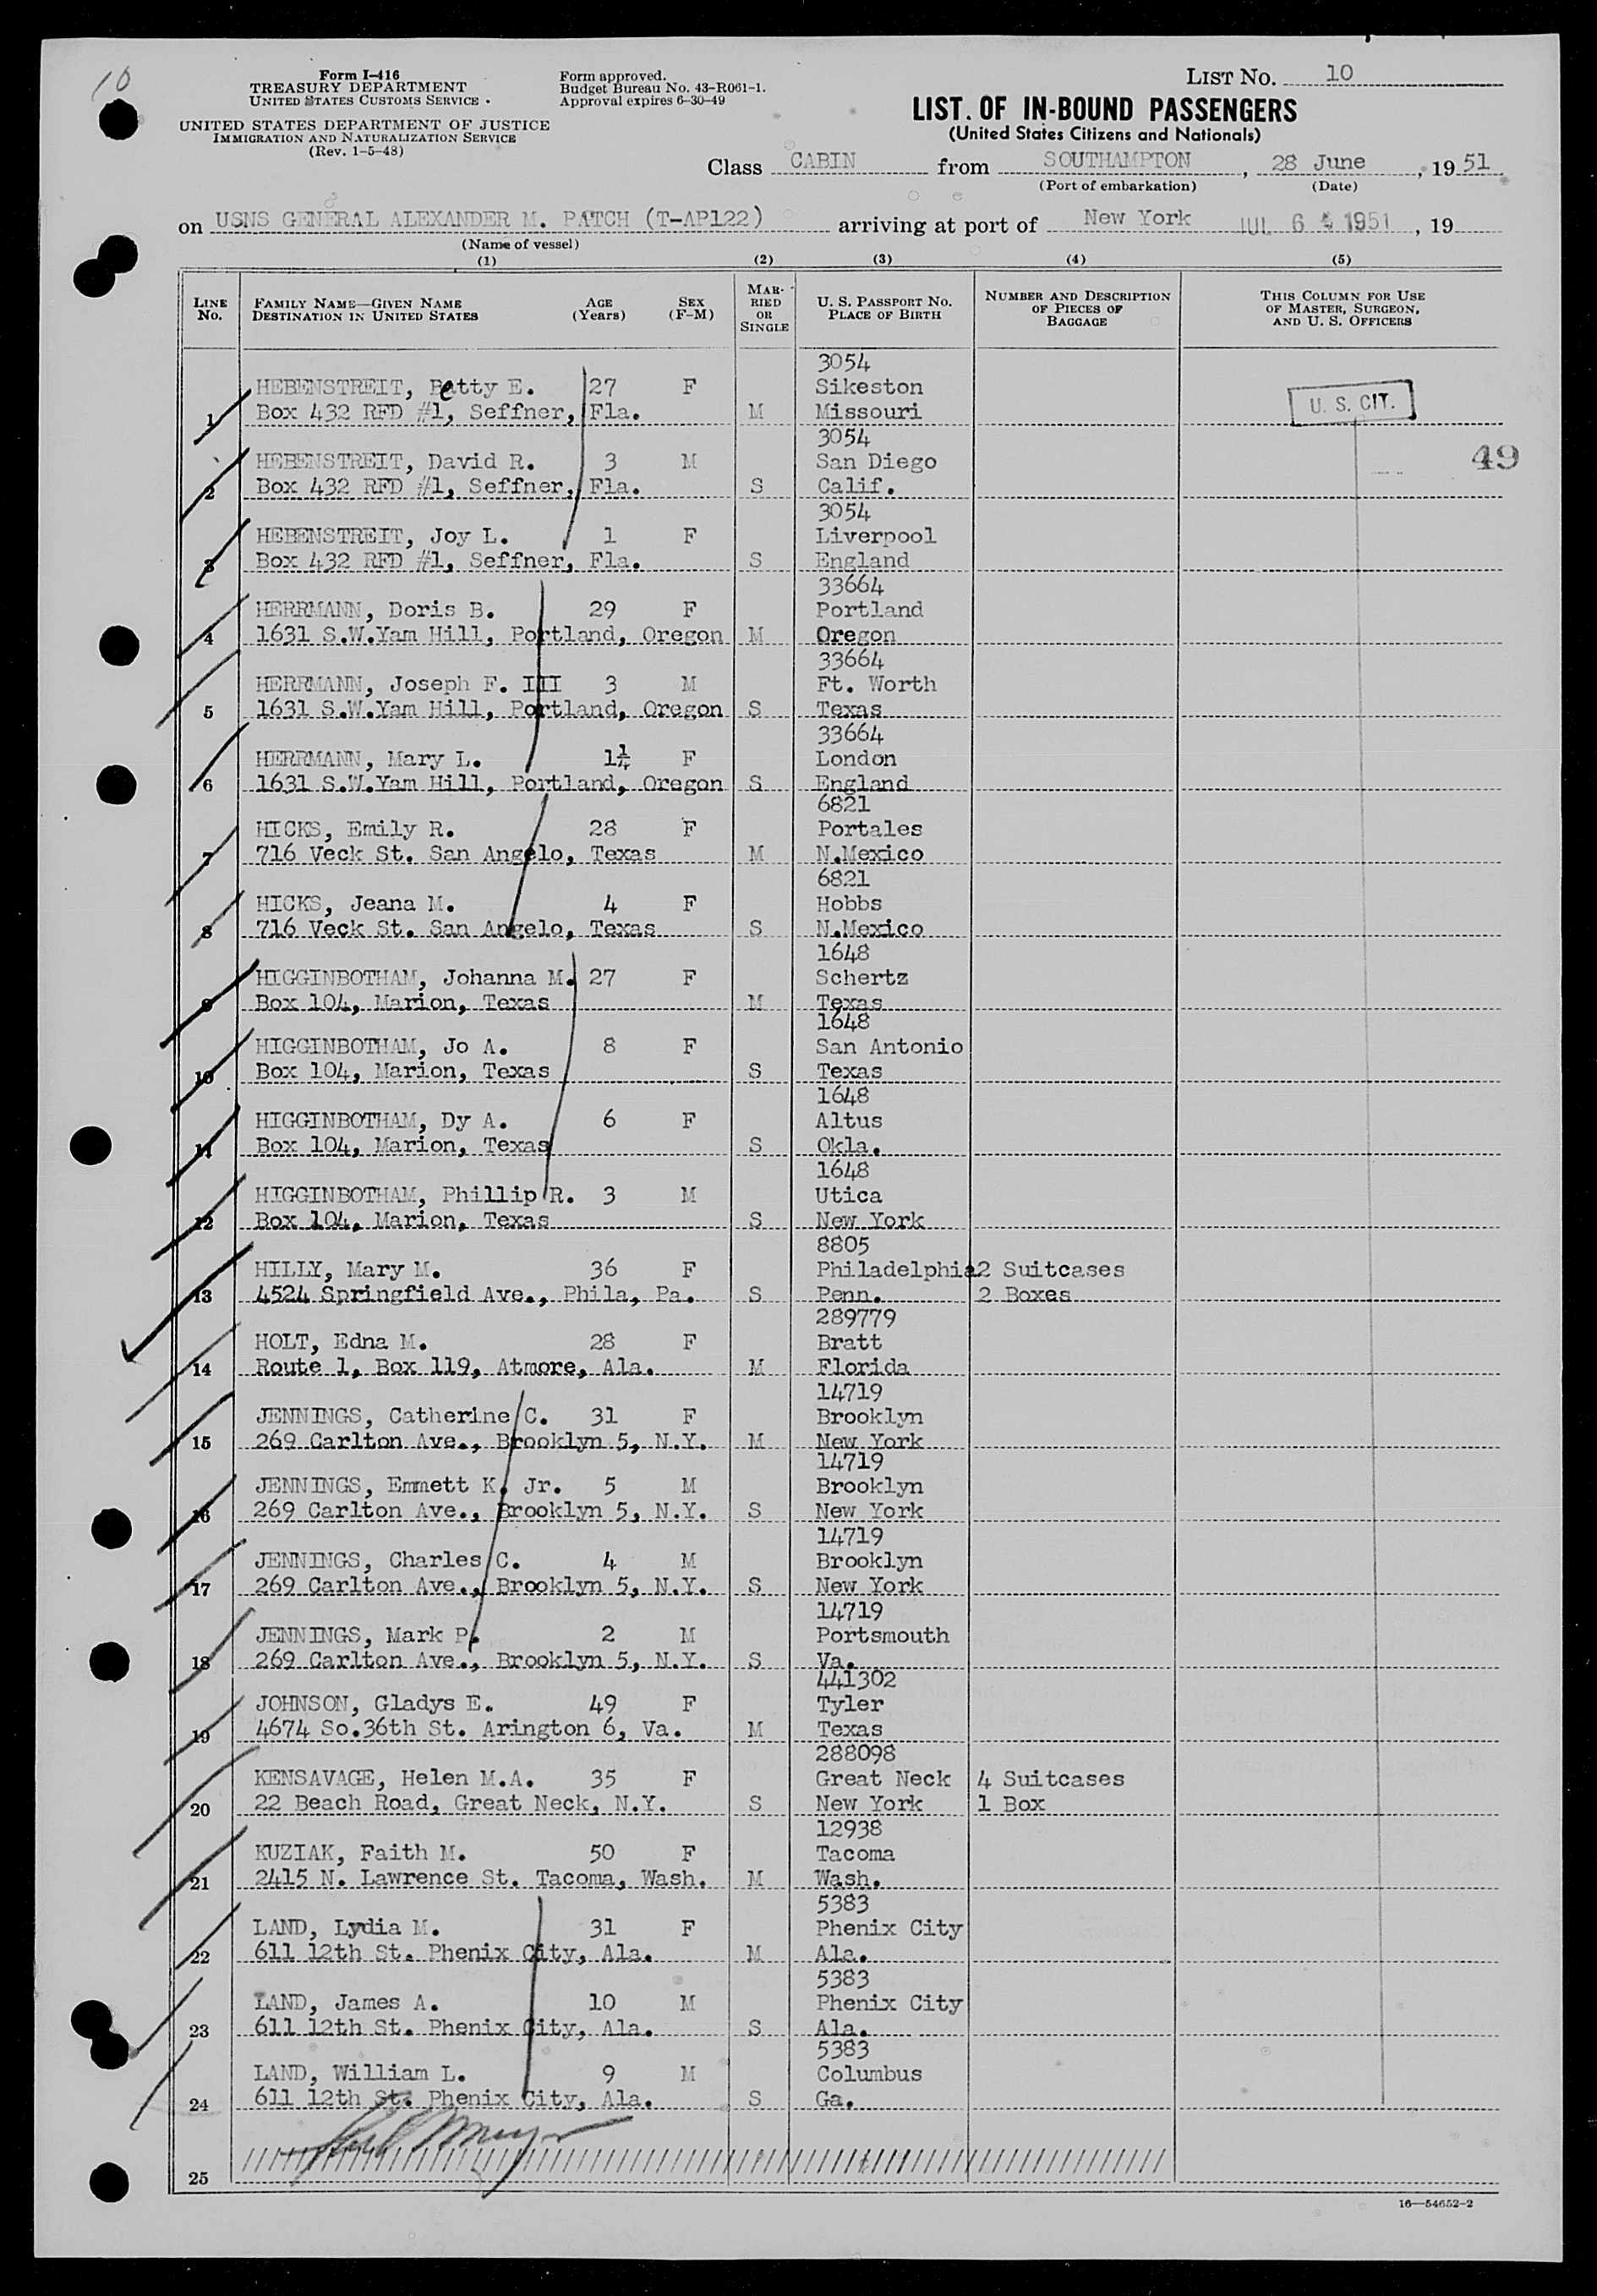 10
Form I-416
TREASURY DEPARTMENT
UNITED STATES CUSTOMS SERVICE
UNITED STATES DEPARTMENT OF JUSTICE
IMMIGRATION AND NATURALIZATION SERVICE
(Rev. 1-5-48)
Form approved.
Budget Bureau No. 43-R061-1.
Approval expires 6-30-49
LIST NO. 10
LIST OF IN-BOUND PASSENGERS
(United States Citizens and Nationals)
Class CABIN from SOUTHAMPTON, 28 June, 1951
(Port of embarkation) (Date)
on USNS GENERAL ALEXANDER M. PATCH (T-AP122) arriving at port of New York JUL 6 1951, 19
(Name of vessel)
(1) (2) (3) (4) (5)
LINE NO. FAMILY NAME—GIVEN NAME DESTINATION IN UNITED STATES AGE (Years) SEX (F-M) MARRIED OR SINGLE U. S. PASSPORT NO. PLACE OF BIRTH NUMBER AND DESCRIPTION OF PIECES OF BAGGAGE THIS COLUMN FOR USE OF MASTER, SURGEON, AND U. S. OFFICERS
3054
HEBENSTREIT, Betty E. 27 F Sikeston
1 Box 432 RFD #1, Seffner, Fla. M Missouri
U. S. CIT.
3054
49
HEBENSTREIT, David R. 3 M San Diego
2 Box 432 RFD #1, Seffner, Fla. S Calif.
3054
HEBENSTREIT, Joy L. 1 F Liverpool
3 Box 432 RFD #1, Seffner, Fla. S England
33664
HERRMANN, Doris B. 29 F Portland
4 1631 S.W.Yam Hill, Portland, Oregon M Oregon
33664
HERRMANN, Joseph F. III 3 M Ft. Worth
5 1631 S.W.Yam Hill, Portland, Oregon S Texas
33664
HERRMANN, Mary L. 1¼ F London
6 1631 S.W.Yam Hill, Portland, Oregon S England
6821
HICKS, Emily R. 28 F Portales
7 716 Veck St. San Angelo, Texas M N.Mexico
6821
HICKS, Jeana M. 4 F Hobbs
8 716 Veck St. San Angelo, Texas S N.Mexico
1648
HIGGINBOTHAM, Johanna M. 27 F Schertz
9 Box 104, Marion, Texas M Texas
1648
HIGGINBOTHAM, Jo A. 8 F San Antonio
10 Box 104, Marion, Texas S Texas
1648
HIGGINBOTHAM, Dy A. 6 F Altus
11 Box 104, Marion, Texas S Okla.
1648
HIGGINBOTHAM, Phillip R. 3 M Utica
12 Box 104, Marion, Texas S New York
8805
HILLY, Mary M. 36 F Philadelphia 2 Suitcases
13 4524 Springfield Ave., Phila, Pa. S Penn. 2 Boxes
289779
HOLT, Edna M. 28 F Bratt
14 Route 1, Box 119, Atmore, Ala. M Florida
14719
JENNINGS, Catherine C. 31 F Brooklyn
15 269 Carlton Ave., Brooklyn 5, N.Y. M New York
14719
JENNINGS, Emmett K. Jr. 5 M Brooklyn
16 269 Carlton Ave., Brooklyn 5, N.Y. S New York
14719
JENNINGS, Charles C. 4 M Brooklyn
17 269 Carlton Ave., Brooklyn 5, N.Y. S New York
14719
JENNINGS, Mark P. 2 M Portsmouth
18 269 Carlton Ave., Brooklyn 5, N.Y. S Va.
441302
JOHNSON, Gladys E. 49 F Tyler
19 4674 So.36th St. Arington 6, Va. M Texas
288098
KENSAVAGE, Helen M.A. 35 F Great Neck 4 Suitcases
20 22 Beach Road, Great Neck, N.Y. S New York 1 Box
12938
KUZIAK, Faith M. 50 F Tacoma
21 2415 N. Lawrence St. Tacoma, Wash. M Wash.
5383
LAND, Lydia M. 31 F Phenix City
22 611 12th St. Phenix City, Ala. M Ala.
5383
LAND, James A. 10 M Phenix City
23 611 12th St. Phenix City, Ala. S Ala.
5383
LAND, William L. 9 M Columbus
24 611 12th St. Phenix City, Ala. S Ga.
25
16—54652-2